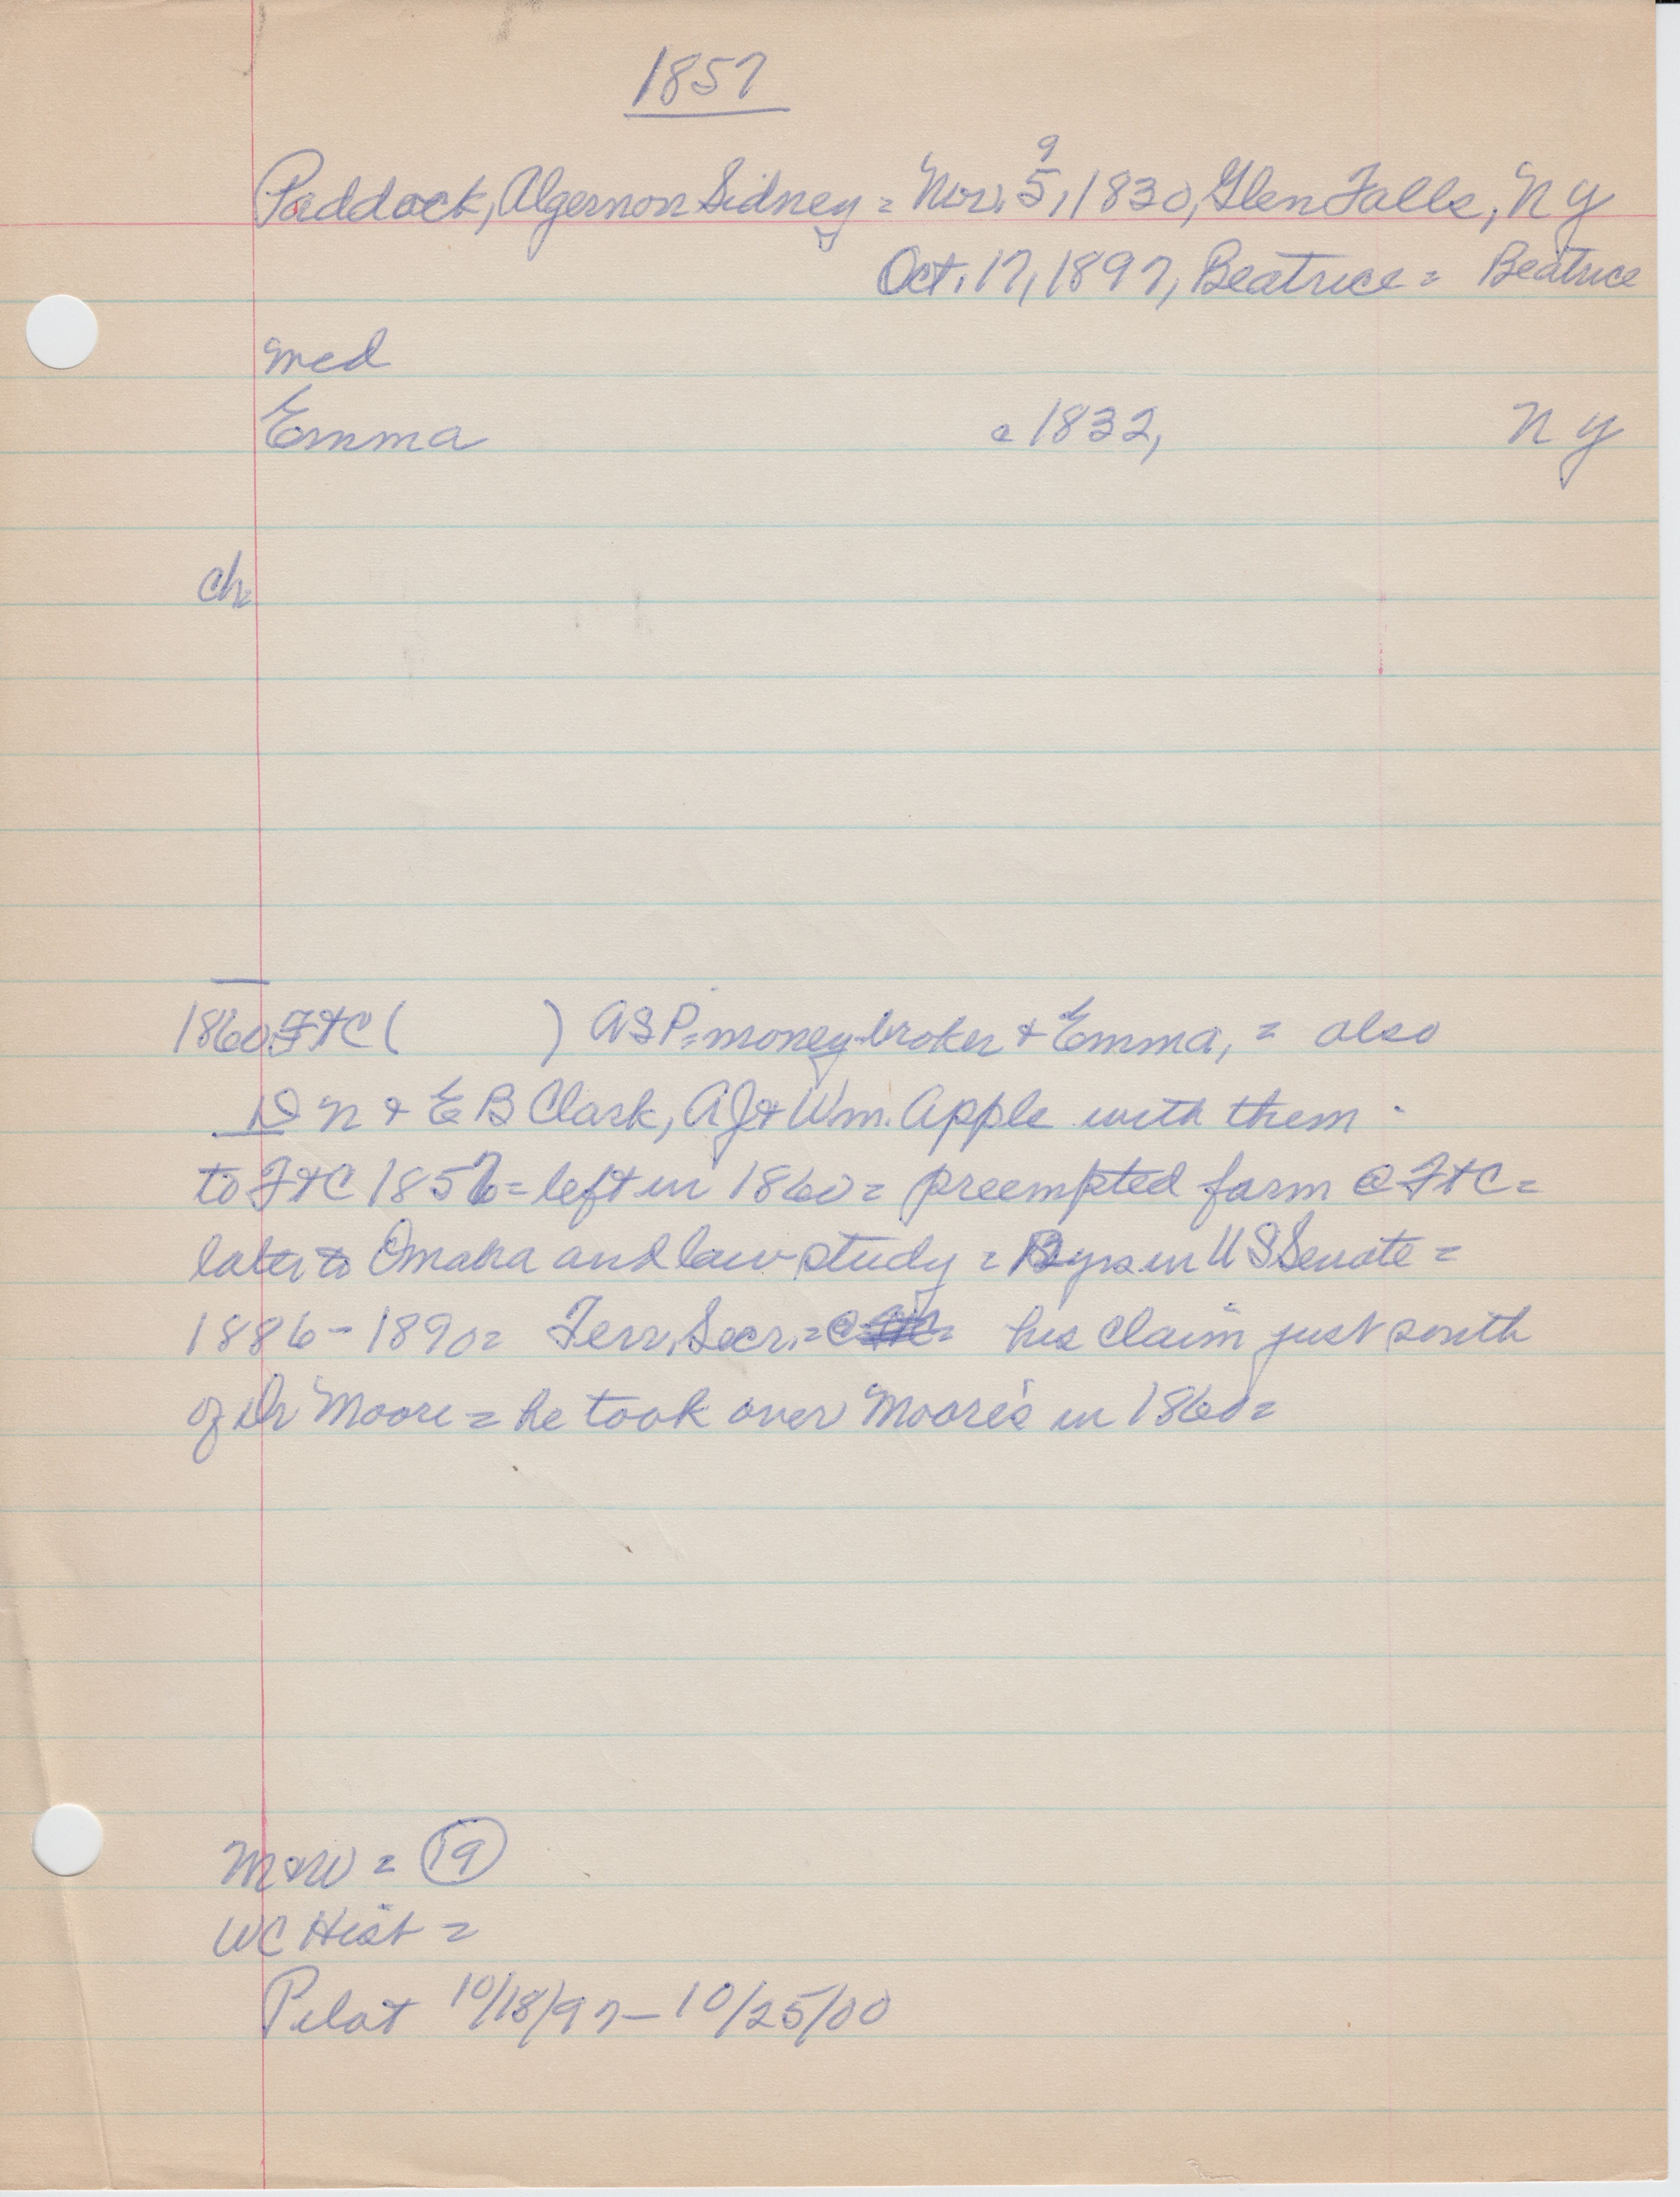 1857
9
Paddock, Algernon Sidney = Nov. 5, 1830, Glen Falls, N Y
Oct. 17, 1897, Beatrice = Beatrice
med
Emma c 1832, N Y
ch=
1860 FtC ( ) ASP = money broker & Emma, = also
D N & E B Clark, AJ & Wm. Apple with them -
to FtC 1857 = left in 1860 = preempted farm @ FtC =
later to Omaha and law study = yrs in US Senate =
1886 - 1890 = Terr. Secr. = his claim just south
of Dr Moore = he took over Moore's in 1860 =
M&W = 19
WC Hist =
Pilot 10/18/97 - 10/25/00